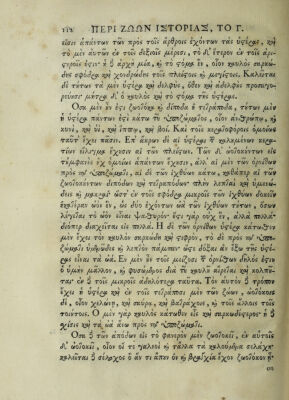 112 ΠΕΡΙ ΖΩΩΝ ΙΣΤΟΡΙΑΣ, ΤΟ Γ.
εἰσιν ἁπάντων τῶν πρὸς τοῖς ἄρθροις ἐχόντων τὰς ὑστέρας, καὶ
τὸ μὲν αὐτῶν ἐν τοῖς δεξιοῖς μέρεσι, τὸ δ' ἕτερον ἐν τοῖς ἀρι-
στεροῖς ἐστίν· ἡ δ' ἀρχὴ μία, καὶ τὸ στόμα ἓν, οἷον καυλὸς σαρκώ-
δης σφόδρα καὶ χονδρώδης τοῖς πλείστοις καὶ μεγίστοις. Καλεῖται
δὲ τούτων τὰ μὲν ὑστέρα καὶ δελφὺς, ὅθεν καὶ ἀδελφοὺς προσαγο-
ρεύουσι· μήτρα δ' ὁ καυλὸς καὶ τὸ στόμα τῆς ὑστέρας.
Ὅσα μὲν ἐν ἐστι ζωοτόκα καὶ δίποδα ἢ τετράποδα, τούτων μὲν
ἡ ὑστέρα πάντων ἐστὶ κάτω τοῦ ὑποζώματος, οἷον ἀνθρώπῳ, καὶ
κυνὶ, καὶ ὑῒ, καὶ ἵππῳ, καὶ βοΐ. Καὶ τοῖς κερατοφόροις ὁμοίως
ταῦτ' ἔχει πᾶσι. Ἐπ' ἄκρων δὲ αἱ ὑστέραι τῶν καλουμένων κερά-
των εἵλιγμα ἔχουσι αἱ τῶν πλείστων. Τῶν δ' ᾠοτόκων εἰς
τοὐμφανὲς οὐχ ὁμοίως ἁπάντων ἔχουσιν, ἀλλ' αἱ μὲν τῶν ὀρνίθων
πρὸς τῷ ὑποζώματι, αἱ δὲ τῶν ἰχθύων κάτω, καθάπερ αἱ τῶν
ζωοτοκούντων διπόδων καὶ τετραπόδων· πλὴν λεπταὶ καὶ ὑμενώ-
δεις καὶ μακραί· ὥστ' ἐν τοῖς σφόδρα μικροῖς τῶν ἰχθύων δοκεῖν
ἑκατέραν ᾠὸν ἓν, ὡς δύο ἐχόντων ᾠὰ τῶν ἰχθύων τούτων, ὅσων
λέγεται τὸ ᾠὸν εἶναι ψαθυρόν· ἔστι γὰρ οὐχ ἓν, ἀλλὰ πολλά·
διόπερ διαχεῖται εἰς πολλά. Ἡ δὲ τῶν ὀρνίθων ὑστέρα κάτωθεν
μὲν ἔχει τὸν καυλὸν σαρκώδη καὶ στιφρὸν, τὸ δὲ πρὸς τῷ ὑπο-
ζώματι ὑμενῶδες καὶ λεπτὸν πάμπαν· ὥστε δόξαι ἂν ἔξω τῆς ὑστέ-
ρας εἶναι τὰ ᾠά. Ἐν μὲν οὖν τοῖς μείζοσι τῶν ὀρνίθων δῆλός ἐστιν
ὁ ὑμὴν μᾶλλον, καὶ φυσώμενος διὰ τοῦ καυλοῦ αἴρεται καὶ κολπῦ-
ται· ἐν δὲ τοῖς μικροῖς ἀδηλότερα ταῦτα. Τὸν αὐτὸν δὲ τρόπον
ἔχει ἡ ὑστέρα καὶ ἐν τοῖς τετράποσι μὲν τῶν ζώων, ᾠοτόκοις
δὲ, οἷον χελώνῃ, καὶ σαύρᾳ, καὶ βατράχοις, καὶ τοῖς ἄλλοις τοῖς
τοιούτοις. Ὁ μὲν γὰρ καυλὸς κάτωθεν εἷς καὶ σαρκωδέστερος· ἡ δὲ
σχίσις καὶ τὰ ᾠὰ ἄνω πρὸς τῷ ὑποζώματι.
Ὅσα δὲ τῶν ἀπόδων εἰς τὸ φανερὸν μὲν ζωοτοκεῖ, ἐν αὑτοῖς
δ' ᾠοτοκεῖ, οἷον οἵ τε γαλεοὶ καὶ τἄλλα τὰ καλούμενα σελάχη·
καλεῖται δὲ σέλαχος ὃ ἄν τι ἄπουν ὂν καὶ βράγχια ἔχον ζωοτόκον ᾖ·